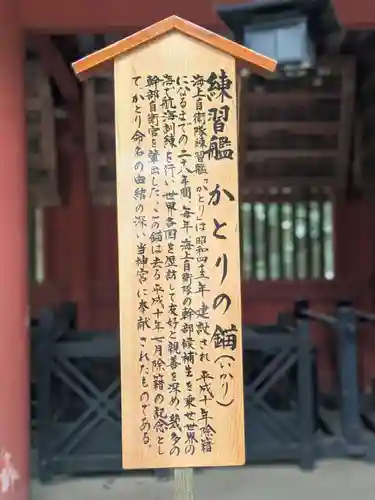 練習艦 かとりの錨(いかり)
海上自衛隊練習艦“かとり”は昭和四十五年 建設され 平成十年除籍
になるまでの二十八年間、毎年 海上自衛隊の幹部候補生を乗せ世界の
海で航海訓練を行い世界各国を歴訪して友好と親善を深め、幾多の
幹部自衛官を輩出した。この錨は去る平成十年 月除籍の記念とし
てかとり命名の由緒の深い当神宮に奉献されたものである。